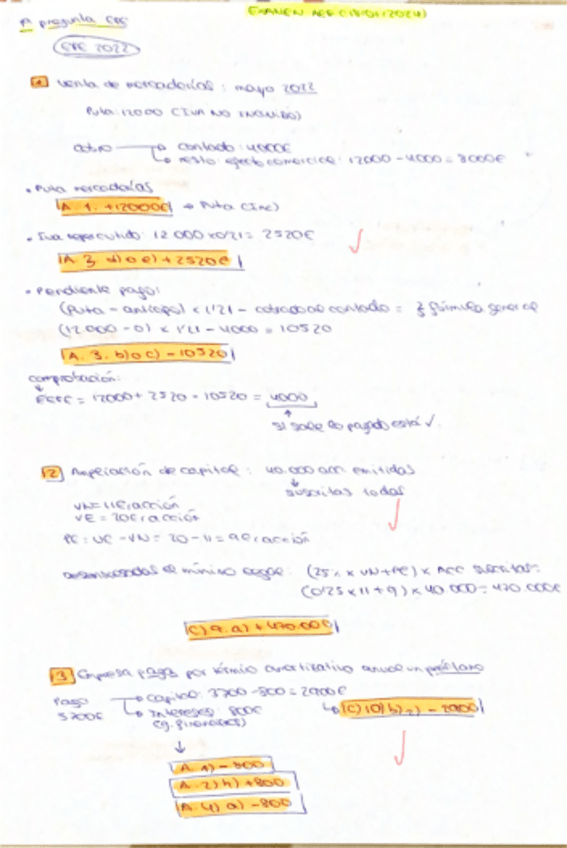 EXAMEN AEF (18/01/2024)
1ª pregunta EFE
EFE 2022
1 Venta de mercaderías: mayo 2022
Puta: 12000 (IVA NO INCLUIDO)
cobro → contado: 4000€
→ resto: efecto comercial: 12000 - 4000 = 8000€
• Puta mercaderías
A. 1. +12000€ → Puta
• Iva repercutido: 12 000 x 0'21 = 2520€
A. 3. d) o e) + 2520€
• Pendiente pago:
(Puta - anticipo) x 1'21 - cobrado al contado = fórmula general
(12.000 - 0) x 1'21 - 4000 = 10520
A. 3. b) o c) - 10520
comprobación:
EFE = 12000 + 2520 - 10520 = 4000
si sale lo pagado está ✓
2 Ampliación de capital: 40.000 acc. emitidas
suscritas todas
VN = 11€/acción
VE = 20€/acción
PE = VE - VN = 20 - 11 = 9€/acción
desembolsadas el mínimo legal: (25% x VN + PE) x Acc suscritas =
(0'25 x 11 + 9) x 40 000 = 470.000€
C) 9. a) + 470.000
3 Empresa paga por término amortizativo anual un préstamo
Pago → Capital: 3700 - 800 = 2900€
3700€ → Intereses: 800€ → C) 10) b) - 2900
(g. financieros)
A. 1) - 800
A. 2) h) + 800
A. 4) a) - 800